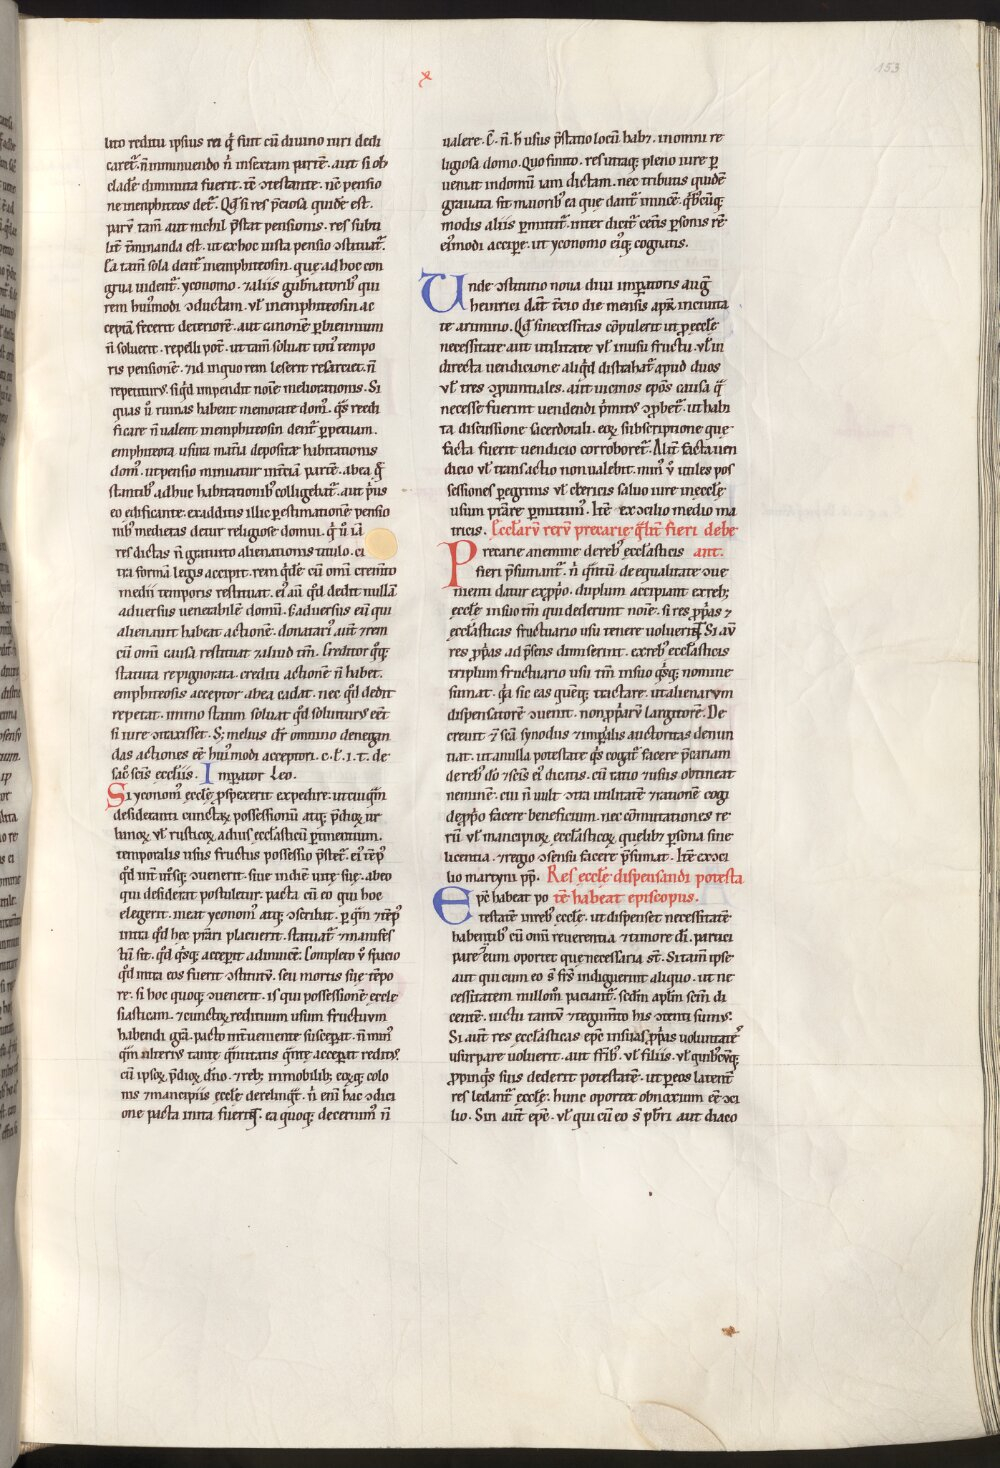 153
x
lito reditu ipsius rei q̇ sunt cū diuino iuri dedi
caret᷑. ñ minuendo ñ insextam partē. aut si ob
cladē diminuta fuerit. tē ɔtestante. nē pensio
ne inemphiteos det᷑. Qđ si res p̄ciosa quidē est.
parū tam̄ aut nichil p̄stat pensionis. res subti
lit᷑ ex hoc iusta pensio ɔstituat᷑.
Ea tam̄ sola dent᷑ inemphiteosin. que ad hoc con
grua uident᷑. yconomo. ⁊ aliis gub̄natorib; qui
rem hui᷒modi ɔductam. ul̄ inemphiteosin ac
ceptā fecerit deteriorē. aut canonē p biennium
ñ soluerit. repelli pot̄. ut tam̄ soluat toti᷒ tempo
ris pensionē. ⁊ id in quo rem leserit resarciet. ñ
repetitur᷒. siqd impendit noīe meliorationis. Si
quas ū ruinas habent memorate dom᷒. q̄s reedi
ficare ñ ualent inemphiteosin dent᷑ ppetuam.
emphiteota usura habitationis
dom᷒. ut pensio minuatur in t̄ciā partē. ab ea q̄
stantib; adhuc habitationib; colligebat᷑. aut p̄us
eo edificante. ex additis illic p estimationē pensio
nib; medietas detur religiose domui. q̇ ū iā
res dictas ñ gratuito alienationis titulo. ci
tra formā legis accipit. rem q̇dē cū om̄i cremto
medii temporis restituat. ei᷒ aū qd dedit nullā
aduersus uenerabilē domū. s; aduersus eū qui
alienauit habeat actionē. donatari᷒ aut̄ ⁊ rem
cū om̄i causa restituat ⁊ aliud tm̄. Creditor q̇q;
statuta re pignorata. crediti actionē ñ habet.
emphiteosis acceptor ab ea cadat. nec qd dedit
repetat. immo statim soluat qd solutur᷒ eēt
si iure ɔtraxisset. S; melius dr̄ omnino denegan
das actiones eē hui᷒modi acceptori. c. l. i. t. de
sac᷒ sc̄is eccliis. Imperator Leo.
Si yconom᷒ eccłę pspexerit expedire. ut cuiq̄m
desideranti possessionū atq; p̄dioꝝ ur
banoꝝ ul̄ rusticoꝝ ad ius eccl̄asticū ptinentium.
temporalis usus fructus possessio p̄stet᷑. ei᷒ tēp᷒
qd int̄ utsq; ɔuenerit. siue in diē uite sue. ab eo
qui desiderat postuletur. pacta cū eo qui hoc
elegerit. ineat yconom᷒ atq; ɔscribat. p q̄m ⁊ tēp᷒
intra qd hec p̄stari placuerit. statuat᷑ ⁊ manifes
tū sit. qd q̇sq; acceperit ad inuicē. Completo ū spacio
qd intra eos fuerit ɔstitutū. seu mortis sue tēpo
re. si hoc quoq; ɔuenerit. is qui possessionē eccłe
siasticam. ⁊ cunctoꝝ redituum usum fructum
habendi gr̄a. pacto int̄ueniente susceperat. ñ min᷒
q̄m alteri᷒ tante q̄ntitatis q̄nte acceperat redit᷒.
cū ipsoꝝ p̄dioꝝ dn̄o. ⁊ reb; immobilib; eoꝝq; colo
nis ⁊ mancipiis eccłę derelinq̄t. ñ eni᷒ hac ɔdici
one pacta inita fuerint. ea quoq; decernim᷒ ñ
ualere. C. ñ. h̄ usus p̄statio locū hab;. in omni re
ligiosa domo. Quo finito. res utraq; pleno iure p
ueniat in domū iam dictam. nec tributis quidē
grauata sit maiorib; ea que dant᷑ inuicē. q̇b;cūq;
modis aliis pmittit᷑. int̄ dicit᷑ cet̄is psonis rē
ei᷒modi accipe. ut yconomo ei᷒q; cognatis.
Unde ɔstitutio noua diui imperatoris aug̃
heinrici dat᷑ t̄cio die mensis apr̄. in ciuita
te arimino. Qd si necessitas cōpulerit ut p eccłę
necessitate aut utilitate ul̄ in usu fructu ul̄ in
directa uendicione aliqd distrahat᷑ apud duos
ul̄ tres ɔprouintiales. aut uicinos ep̄os causa q̄
necesse fuerint uendendi p̄mit᷒ ɔprobet᷑. ut habi
ta discussione sacerdotali. eoꝝ subscriptione que
facta fuerit uendicio corroboret᷑. Alit̄ facta uen
dicio ul̄ transactio non ualebit. min᷒ ū utiles pos
sessiones peregrinis ul̄ clericis saluo iure in eccłę
usum p̄stare pmittim᷒. Itē ex ɔcilio medio ma
tricis. Eccl̄arū rerū precarię q̄lit̄ fieri debe
ant.
Precarie a nemine de reb; eccl̄asticis
fieri p̄sumant᷑. ñ q̄ntū de equalitate ɔue
nienti datur ex p̄p̄o. duplum accipiant ex reb;
eccłę in suo tm̄ qui dederunt noīe. si res p̄p̄as ⁊
eccl̄asticas fructuario usu tenere uoluerint. Si aū
res p̄p̄as ad p̄sens dimiserint. ex reb; eccl̄asticis
triplum fructuario usu tm̄ in suo q̇sq; nomine
sumat. q̇a sic eas quēq; tractare. ut alienarum
dispensatorē ɔuenit. non p̄p̄arū largitorē. De
creuit ⁊ sc̄a synodus ⁊ imp̄ialis auctoritas denun
tiat. ut a nulla potestate q̇s cogat᷑ facere p̄cariam
de reb; dō ⁊ sc̄is ei᷒ dicatis. cū ratio ⁊ usus obtineat
neminē. cui ñ uult ɔtra utilitatē ⁊ rationē cogi
de p̄p̄o facere beneficium. nec cōmutationes re
rū ul̄ mancipioꝝ. eccl̄asticoꝝ. quelib; psona sine
licentia. ⁊ regio ɔsensu facere p̄sumat. Itē ex ɔci
lio martyni pp̄. Res eccłę dispensandi potesta
tē habeat episcopus.
Ep̄c habeat po
testatē in reb; eccłę. ut dispenset necessitatē
habentib; cū om̄i reuerentia ⁊ timore dī. partici
pare eum oportet que necessaria st̄. Si tam̄ ipse
aut qui cum eo s̄ fr̄s indiguerint aliquo. ut ne
cessitatem nullom᷒ patiant᷑. scd̄m apl̄m sc̄m di
centē. uictu tantū ⁊ tegum̄to his ɔtenti sum᷒.
Si aut̄ res eccl̄asticas ep̄c in suas p̄p̄as uoluntate᷒
usurpare uoluerit. aut fr̄ib;. ul̄ filiis. ul̄ quib;cūq;
ppinq̇s suis dederit potestatē. ut p eos latent᷑
res ledant᷑ eccłę. hunc oportet obnoxium eē ɔci
lio. Sin aut̄ ep̄c. ul̄ qui cū eo s̄ pb̄ri aut diaco